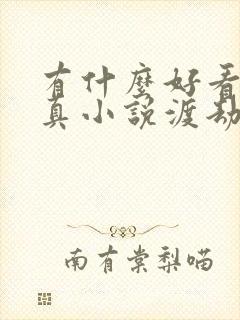 有什麼好看
真小說渡劫
南有棠梨喵